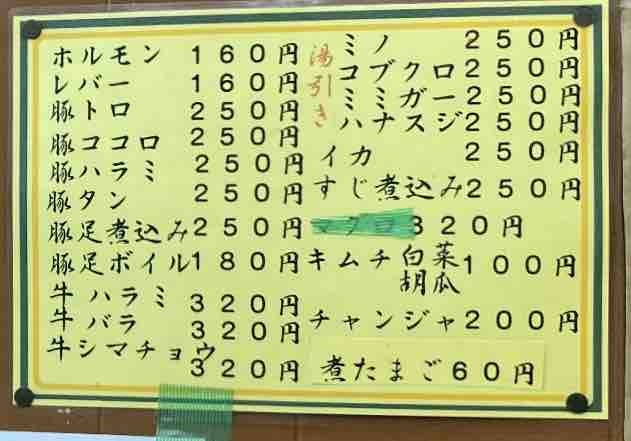 ホルモン 160円
レバー 160円
豚トロ 250円
豚ココロ 250円
豚ハラミ 250円
豚タン 250円
豚足煮込み 250円
豚足ボイル 180円
牛ハラミ 320円
牛バラ 320円
牛シマチョウ 320円
湯引き
ミノ 250円
コブクロ 250円
ミミガー 250円
ハナスジ 250円
イカ 250円
すじ煮込み 250円
マグロ 320円
キムチ 白菜 胡瓜 100円
チャンジャ 200円
煮たまご 60円